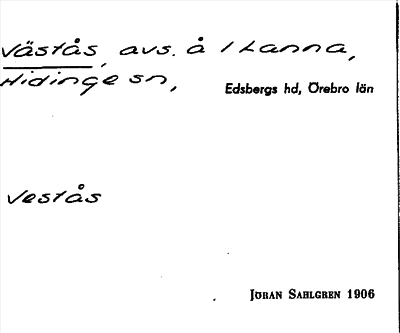 Västås, avs. å / Lanna,
Hidinge sn,
Edsbergs hd, Örebro län
Vestås
JÖRAN SAHLGREN 1906